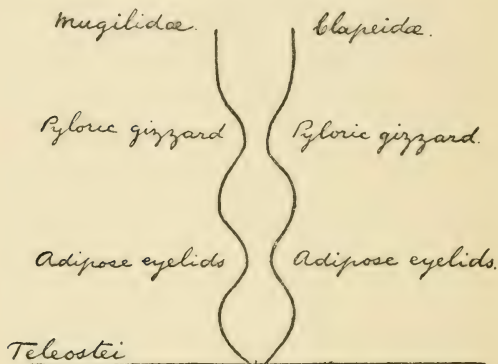 Mugilidæ. Clapeidæ.
Pyloric gizzard Pyloric gizzard.
Adipose eyelids Adipose eyelids.
Teleostei